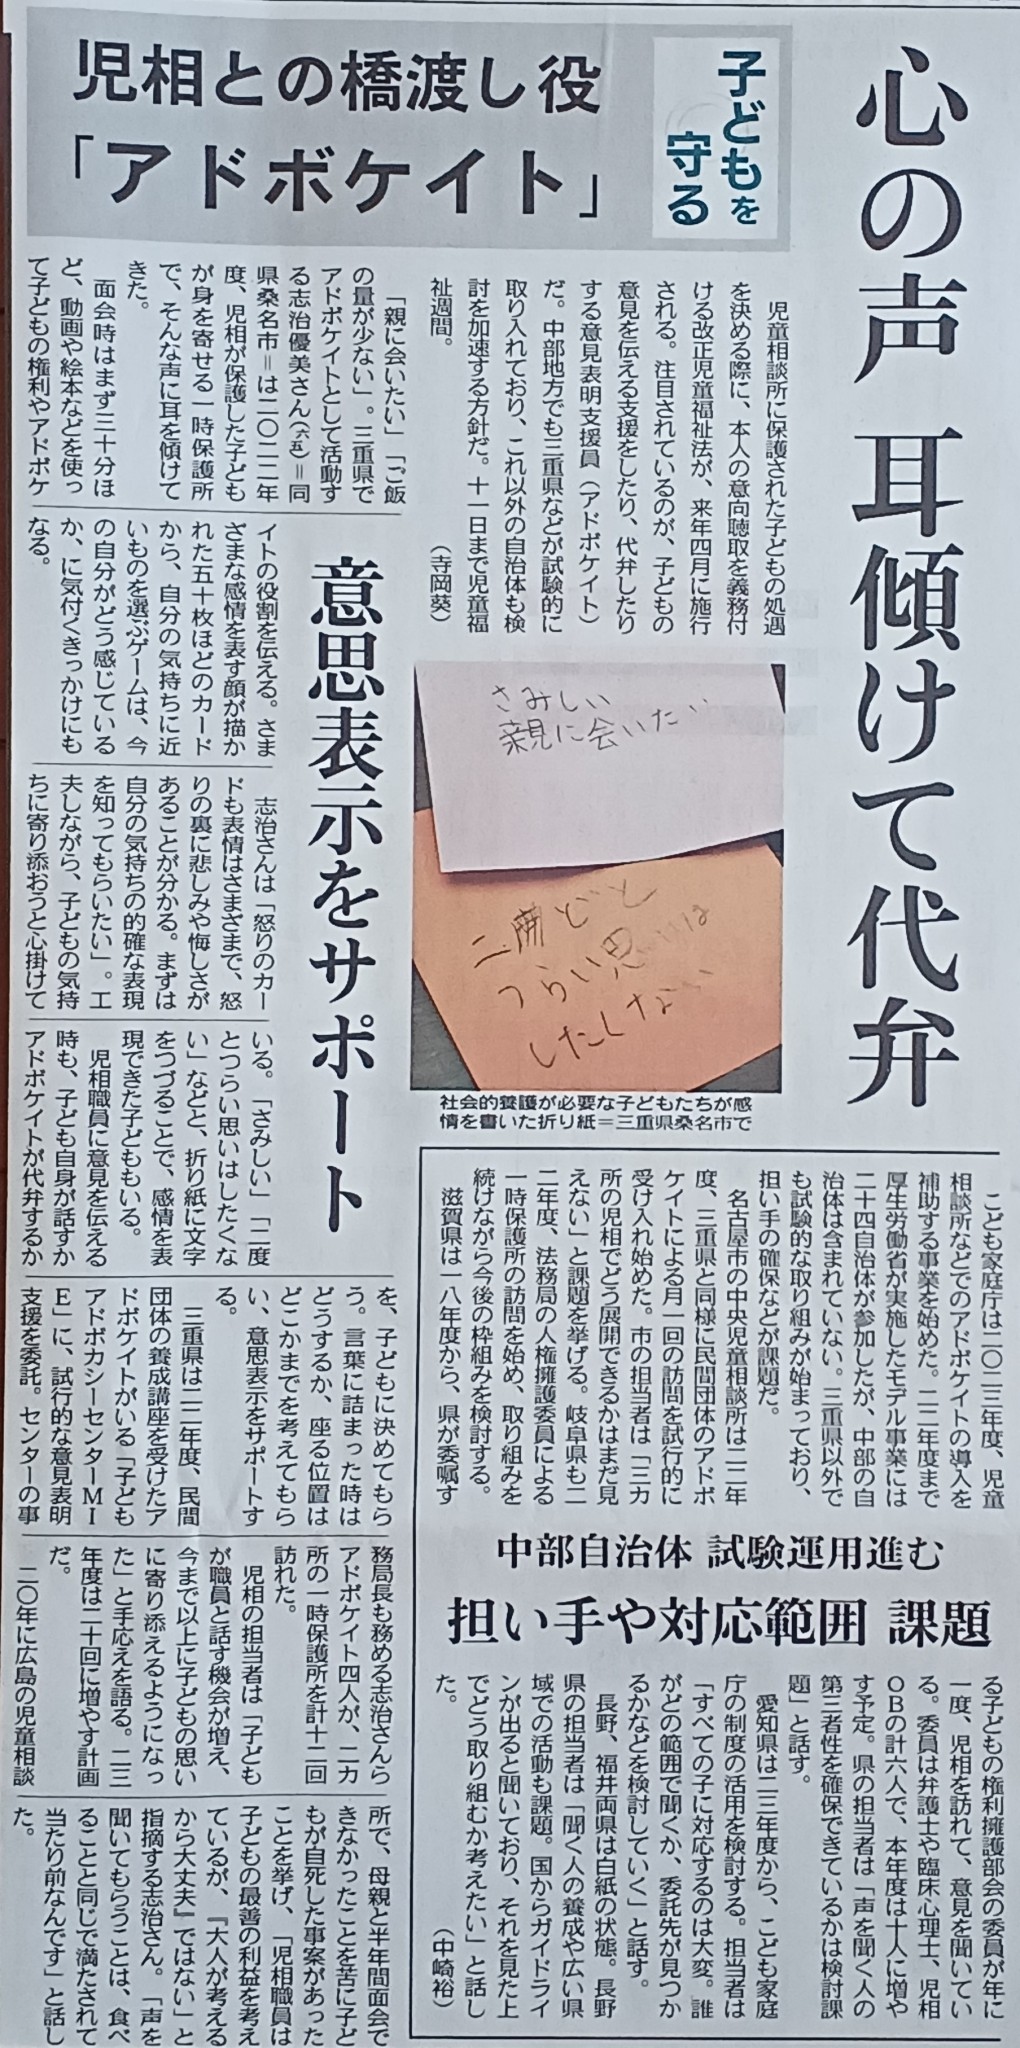 心の声 耳傾けて代弁
子どもを
守る
児相との橋渡し役
「アドボケイト」
児童相談所に保護された子どもの処遇
を決める際に、本人の意向聴取を義務付
ける改正児童福祉法が、来年四月に施行
される。注目されているのが、子どもの
意見を伝える支援をしたり、代弁したり
する意見表明支援員（アドボケイト）
だ。中部地方でも三重県などが試験的に
取り入れており、これ以外の自治体も検
討を加速する方針だ。十一日まで児童福
祉週間。
（寺岡葵）
「親に会いたい」「ご飯
の量が少ない」。三重県で
アドボケイトとして活動す
る志治優美さん（六五）＝同
県桑名市＝は二〇二二年
度、児相が保護した子ども
が身を寄せる一時保護所
で、そんな声に耳を傾けて
きた。
面会時はまず三十分ほ
ど、動画や絵本などを使っ
て子どもの権利やアドボケ
意思表示をサポート
イトの役割を伝える。さま
ざまな感情を表す顔が描か
れた五十枚ほどのカード
から、自分の気持ちに近
いものを選ぶゲームは、今
の自分がどう感じている
か、に気付くきっかけにも
なる。
志治さんは「怒りのカー
ドも表情はさまざまで、怒
りの裏に悲しみや悔しさが
あることが分かる。まずは
自分の気持ちの的確な表現
を知ってもらいたい」。工
夫しながら、子どもの気持
ちに寄り添おうと心掛けて
いる。「さみしい」「二度
とつらい思いはしたくな
い」などと、折り紙に文字
をつづることで、感情を表
現できた子どももいる。
児相職員に意見を伝える
時も、子ども自身が話すか
アドボケイトが代弁するか
を、子どもに決めてもら
う。言葉に詰まった時は
どうするか、座る位置は
どこかまでを考えてもら
い、意思表示をサポートす
る。
三重県は二二年度、民間
団体の養成講座を受けたア
ドボケイトがいる「子ども
アドボカシーセンターMI
E」に、試行的な意見表明
支援を委託。センターの事
務局長も務める志治さんら
アドボケイト四人が、二カ
所の一時保護所を計十二回
訪れた。
児相の担当者は「子ども
が職員と話す機会が増え、
今まで以上に子どもの思い
に寄り添えるようになっ
た」と手応えを語る。二三
年度は二十回に増やす計画
だ。
二〇年に広島の児童相談
所で、母親と半年間面会で
きなかったことを苦に子ど
もが自死した事案があった
ことを挙げ、「児相職員は
子どもの最善の利益を考え
ているが、『大人が考える
から大丈夫』ではない」と
指摘する志治さん。「声を
聞いてもらうことは、食べ
ることと同じで満たされて
当たり前なんです」と話し
た。
さみしい
親に会いたい
二度と
つらい思いは
したくない
社会的養護が必要な子どもたちが感
情を書いた折り紙＝三重県桑名市で
こども家庭庁は二〇二三年度、児童
相談所などでのアドボケイトの導入を
補助する事業を始めた。二二年度まで
厚生労働省が実施したモデル事業には
二十四自治体が参加したが、中部の自
治体は含まれていない。三重県以外で
も試験的な取り組みが始まっており、
担い手の確保などが課題だ。
名古屋市の中央児童相談所は二二年
度、三重県と同様に民間団体のアドボ
ケイトによる月一回の訪問を試行的に
受け入れ始めた。市の担当者は「三カ
所の児相でどう展開できるかはまだ見
えない」と課題を挙げる。岐阜県も二
二年度、法務局の人権擁護委員による
一時保護所の訪問を始め、取り組みを
続けながら今後の枠組みを検討する。
滋賀県は一八年度から、県が委嘱す
中部自治体 試験運用進む
担い手や対応範囲 課題
る子どもの権利擁護部会の委員が年に
一度、児相を訪れて、意見を聞いてい
る。委員は弁護士や臨床心理士、児相
OBの計六人で、本年度は十人に増や
す予定。県の担当者は「声を聞く人の
第三者性を確保できているかは検討課
題」と話す。
愛知県は二三年度から、こども家庭
庁の制度の活用を検討する。担当者は
「すべての子に対応するのは大変。誰
がどの範囲で聞くか、委託先が見つか
るかなどを検討していく」と話す。
長野、福井両県は白紙の状態。長野
県の担当者は「聞く人の養成や広い県
域での活動も課題。国からガイドライ
ンが出ると聞いており、それを見た上
でどう取り組むか考えたい」と話し
た。
（中崎裕）